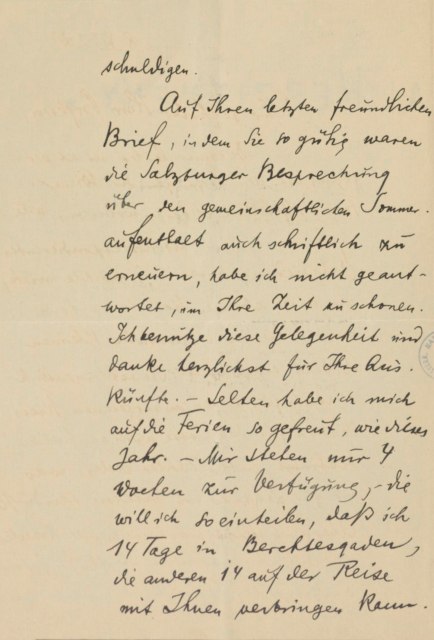 schuldigen.
Auf Ihren letzten freundlichen
Brief, in dem Sie so gütig waren
die Salzburger Besprechung
über den gemeinschaftlichen Sommer-
aufenthalt auch schriftlich zu
erneuern, habe ich nicht geant-
wortet, um Ihre Zeit zu schonen.
Ich benütze diese Gelegenheit und
danke herzlichst für Ihre Aus-
künfte. – Selten habe ich mich
auf die Ferien so gefreut, wie dieses
Jahr. – Mir stehen nur 4
Wochen zur Verfügung, – die
will ich so einteilen, daß ich
14 Tage in Berchtesgaden,
die anderen 14 auf der Reise
mit Ihnen verbringen kann.